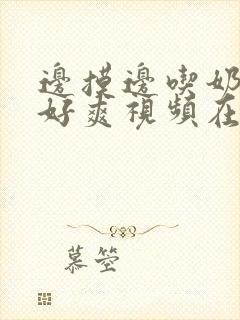 邊摸邊喫奶
好爽視頻在
慕箜